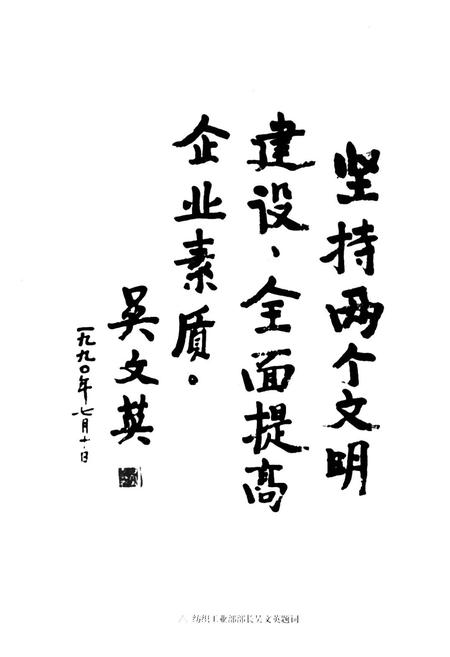 坚持两个文明
建设、全面提高
企业素质。
吴文英
一九九〇年七月十日
纺织工业部部长吴文英题词